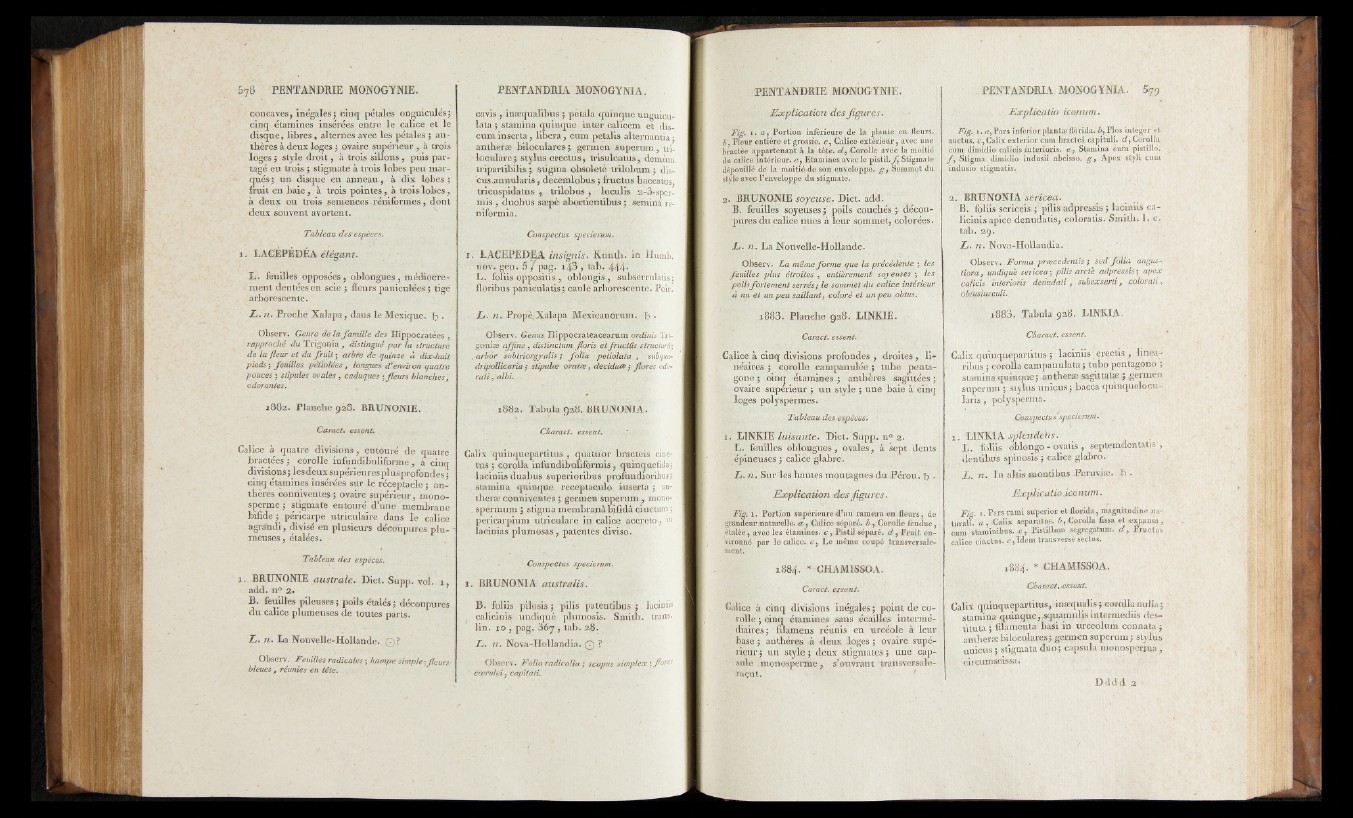 578 PENTANDRIE MONOGYNIE.
concaves, inégales; cinq pétales onguiculés;
cinq étamines insérées entre le calice et le
disque, libres, alternes avec les pétales; an-
thères à deux loges; ovaire supérieur, à trois
loges; style droit, à trois sillons, puis par-
tagé en trois; stigmate à trois lobes peu mar-
qués; un disque en anneau, à dix lobes;
fruit en baie, à trois pointes, à trois lobes,
à deux ou trois semences réniformes, dont
deux souvent avortent.
Tableau des espèces.
1. LACÉPÉDÉA élégant.
L. feuilles opposées, oblongues, médiocre-
ment dentées en scie; fleurs paniculées; tige
arborescente.
L. n. Proche Xalapa, dans le Mexique. ♄.
Observ. Genre de la famille des Hippocratées,
rapproché du Trigonia, distingué par la structure
de la fleur et du fruit; arbre de quinze à dix-huit
pieds; feuilles pétiolées, longues d'environ quatre
pouces; stipules ovales, caduques; fleurs blanches,
odorantes.
1882. Planche 928. BRUNONIE.
Caract. essent.
Calice à quatre divisions, entouré de quatre
bractées; corolle infundibuliforme, à cinq
divisions; les deux supérieures plus profondes;
cinq étamines insérées sur le réceptacle; an-
thères conniventes; ovaire supérieur, mono-
sperme; stigmate entouré d'une membrane
bifide; péricarpe utriculaire dans le calice
agrandi, divisé en plusieurs découpures plu-
meuses, étalées.
Tableau des espèces.
1. BRUNONIE australe. Dict. Supp. vol. 1,
add. n° 2.
B. feuilles pileuses; poils étalés; découpures
du calice plumeuses de toutes parts.
L. n. La Nouvelle-Hollande. ⊙?
Observ. Feuilles radicales; hampe simple; fleurs
bleues, réunies en tête.
PENTANDRIA MONOGYNIA.
cavis, inæqualibus; petala quinque unguicu-
lata; stamina quinque inter calicem et dis-
cum inserta, libera, cum petalis alternantia;
antheræ biloculares; germen superum, tri-
loculare; stylus erectus, trisulcatus, demùm
tripartibilis; stigma obsoletè trilobum; dis-
cus annularis, decemlobus; fructus baccatus,
tricuspidatus, trilobus, loculis 2-3-sper-
mis, duobus sæpè abortientibus; semina re-
niformia.
Conspectus specierum.
1. LACEPEDEA insignis. Kunth. in Humb.
nov. gen. 5, pag. 143, tab. 444.
L. foliis oppositis, oblongis, subserrulatis;
floribus paniculatis; caule arborescente. Poir.
L. n. Propè Xalapa Mexicanorum. ♄.
Observ. Genus Hippocrateacearum ordinis Tri-
goniæ affine, distinctum floris et fructûs structurâ;
arbor subtriorgyalis; folia petiolata, subqua-
dripollicaria; stipulæ ovatæ, deciduæ; flores odo-
rati, albi.
1882. Tabula 928. BRUNONIA.
Charact. essent.
Calix quinquepartitus, quatuor bracteis cinc-
tus; corolla infundibuliformis, quinquefida;
laciniis duabus superioribus profundioribus;
stamina quinque receptaculo inserta; an-
theræ conniventes; germen superum, mono-
spermum; stigma membranâ bifidâ cinctum;
pericarpium utriculare in calice accreto, in
lacinias plumosas, patentes diviso.
Conspectus specierum.
1. BRUNONIA australis.
B. foliis pilosis; pilis patentibus; laciniis
calicinis undiquè plumosis. Smith. trans.
lin. 10, pag. 367, tab. 28.
L. n. Nova-Hollandia. ⊙?
Observ. Folia radicalia; scapus simplex; flores
cœrulei, capitati.
PENTANDRIE MONOGYNIE.
Explication des figures.
Fig. 1. a, Portion inférieure de la plante en fleurs.
b, Fleur entière et grossie. c, Calice extérieur, avec une
bractée appartenant à la tête. d, Corolle avec la moitié
du calice intérieur. e, Etamines avec le pistil. f, Stigmate
dépouillé de la moitié de son enveloppe. g, Sommet du
style avec l'enveloppe du stigmate.
2. BRUNONIE soyeuse. Dict. add.
B. feuilles soyeuses; poils couchés; décou-
pures du calice nues à leur sommet, colorées.
L. n. La Nouvelle-Hollande.
Observ. La même forme que la précédente; les
feuilles plus étroites, entièrement soyeuses; les
poils fortement serrés; le sommet du calice intérieur
à nu et un peu saillant, coloré et un peu obtus.
1883. Planche 928. LINKIE.
Caract. essent.
Calice à cinq divisions profondes, droites, li-
néaires; corolle campanulée; tube penta-
gone; cinq étamines; anthères sagittées;
ovaire supérieur; un style; une baie à cinq
loges polyspermes.
Tableau des espèces.
1. LINKIE luisante. Dict. Supp. n° 2.
L. feuilles oblongues, ovales, à sept dents
épineuses; calice glabre.
L. n. Sur les hautes montagnes du Pérou. ♄.
Explication des figures.
Fig. 1. Portion supérieure d'un rameau en fleurs, de
grandeur naturelle. a, Calice séparé. b, Corolle fendue,
étalée, avec les étamines. c, Pistil séparé. d, Fruit en-
vironné par le calice. e, Le même coupé transversale-
ment.
1884. * CHAMISSOA.
Caract. essent.
Calice à cinq divisions inégales; point de co-
rolle; cinq étamines sans écailles intermé-
diaires; filamens réunis en urcéole à leur
base; anthères à deux loges; ovaire supé-
rieur; un style; deux stigmates; une cap-
sule monosperme, s'ouvrant transversale-
ment.
PENTANDRIA MONOGYNIA. 579
Explicatio iconum.
Fig. 1. a, Pars inferior plantæ florida. b, Flos integer et
auctus. c, Calix exterior cum bracteâ capituli. d, Corolla
cum dimidio calicis interioris. e, Stamina cum pistillo.
f, Stigma dimidio indusii abcisso. g, Apex styli cum
indusio stigmatis.
2. BRUNONIA sericea.
B. foliis sericeis; pilis adpressis; laciniis ca-
licinis apice denudatis, coloratis. Smith. l. c.
tab. 29.
L. n. Nova-Hollandia.
Observ. Forma præcedentis; sed folia angus-
tiora, undiquè sericea; pilis arctè adpressis; apex
calicis interioris denudati, subexserti, colorati,
obtusiusculi.
1883. Tabula 928. LINKIA.
Charact. essent.
Calix quinquepartitus; laciniis erectis, linea-
ribus; corolla campanulata; tubo pentagono;
stamina quinque; antheræ sagittatæ; germen
superum; stylus unicus; bacca quinquelocu-
laris, polysperma.
Conspectus specierum.
1. LINKIA splendens.
L. foliis oblongo-ovatis, septemdentatis,
dentibus spinosis; calice glabro.
L. n. In altis montibus Peruviæ. ♄.
Explicatio iconum.
Fig. 1. Pars rami superior et florida, magnitudine na-
turali. a, Calix separatus. b, Corolla fissa et expansa,
cum staminibus. c, Pistillum segregatum. d, Fructus
calice cinctus. e, Idem transversè sectus.
1884. * CHAMISSOA.
Charact. essent.
Calix quinquepartitus, inæqualis; corolla nulla;
stamina quinque, squamulis intermediis des-
tituta; filamenta basi in urceolum connata;
antheræ biloculares; germen superum; stylus
unicus; stigmata duo; capsula monosperma,
circumscissa.
Dddd 2